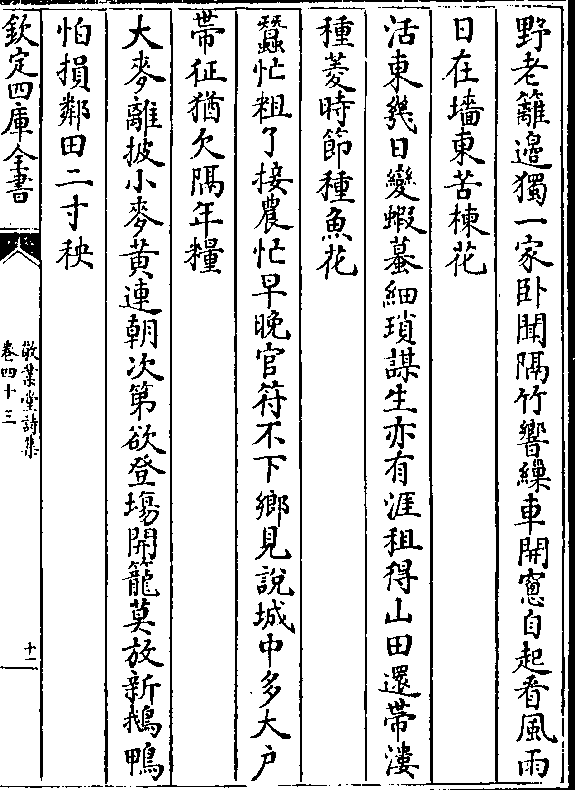 野老籬邊獨一家卧聞隔竹響繰車開窻自起看風雨
日在墻東苦楝花
活東幾日變蝦蟇細瑣謀生亦有涯租得山田還帶漊
種菱時節種魚花
蠶忙粗了接農忙早晚官符不下鄉見説城中多大户
帶征猶欠隔年糧
大麥離披小麥黄連朝次第欲登塲開籠莫放新鵝鴨
怕損鄰田二寸秧
欽定四庫全書
敬業堂詩集
卷四十三
十一